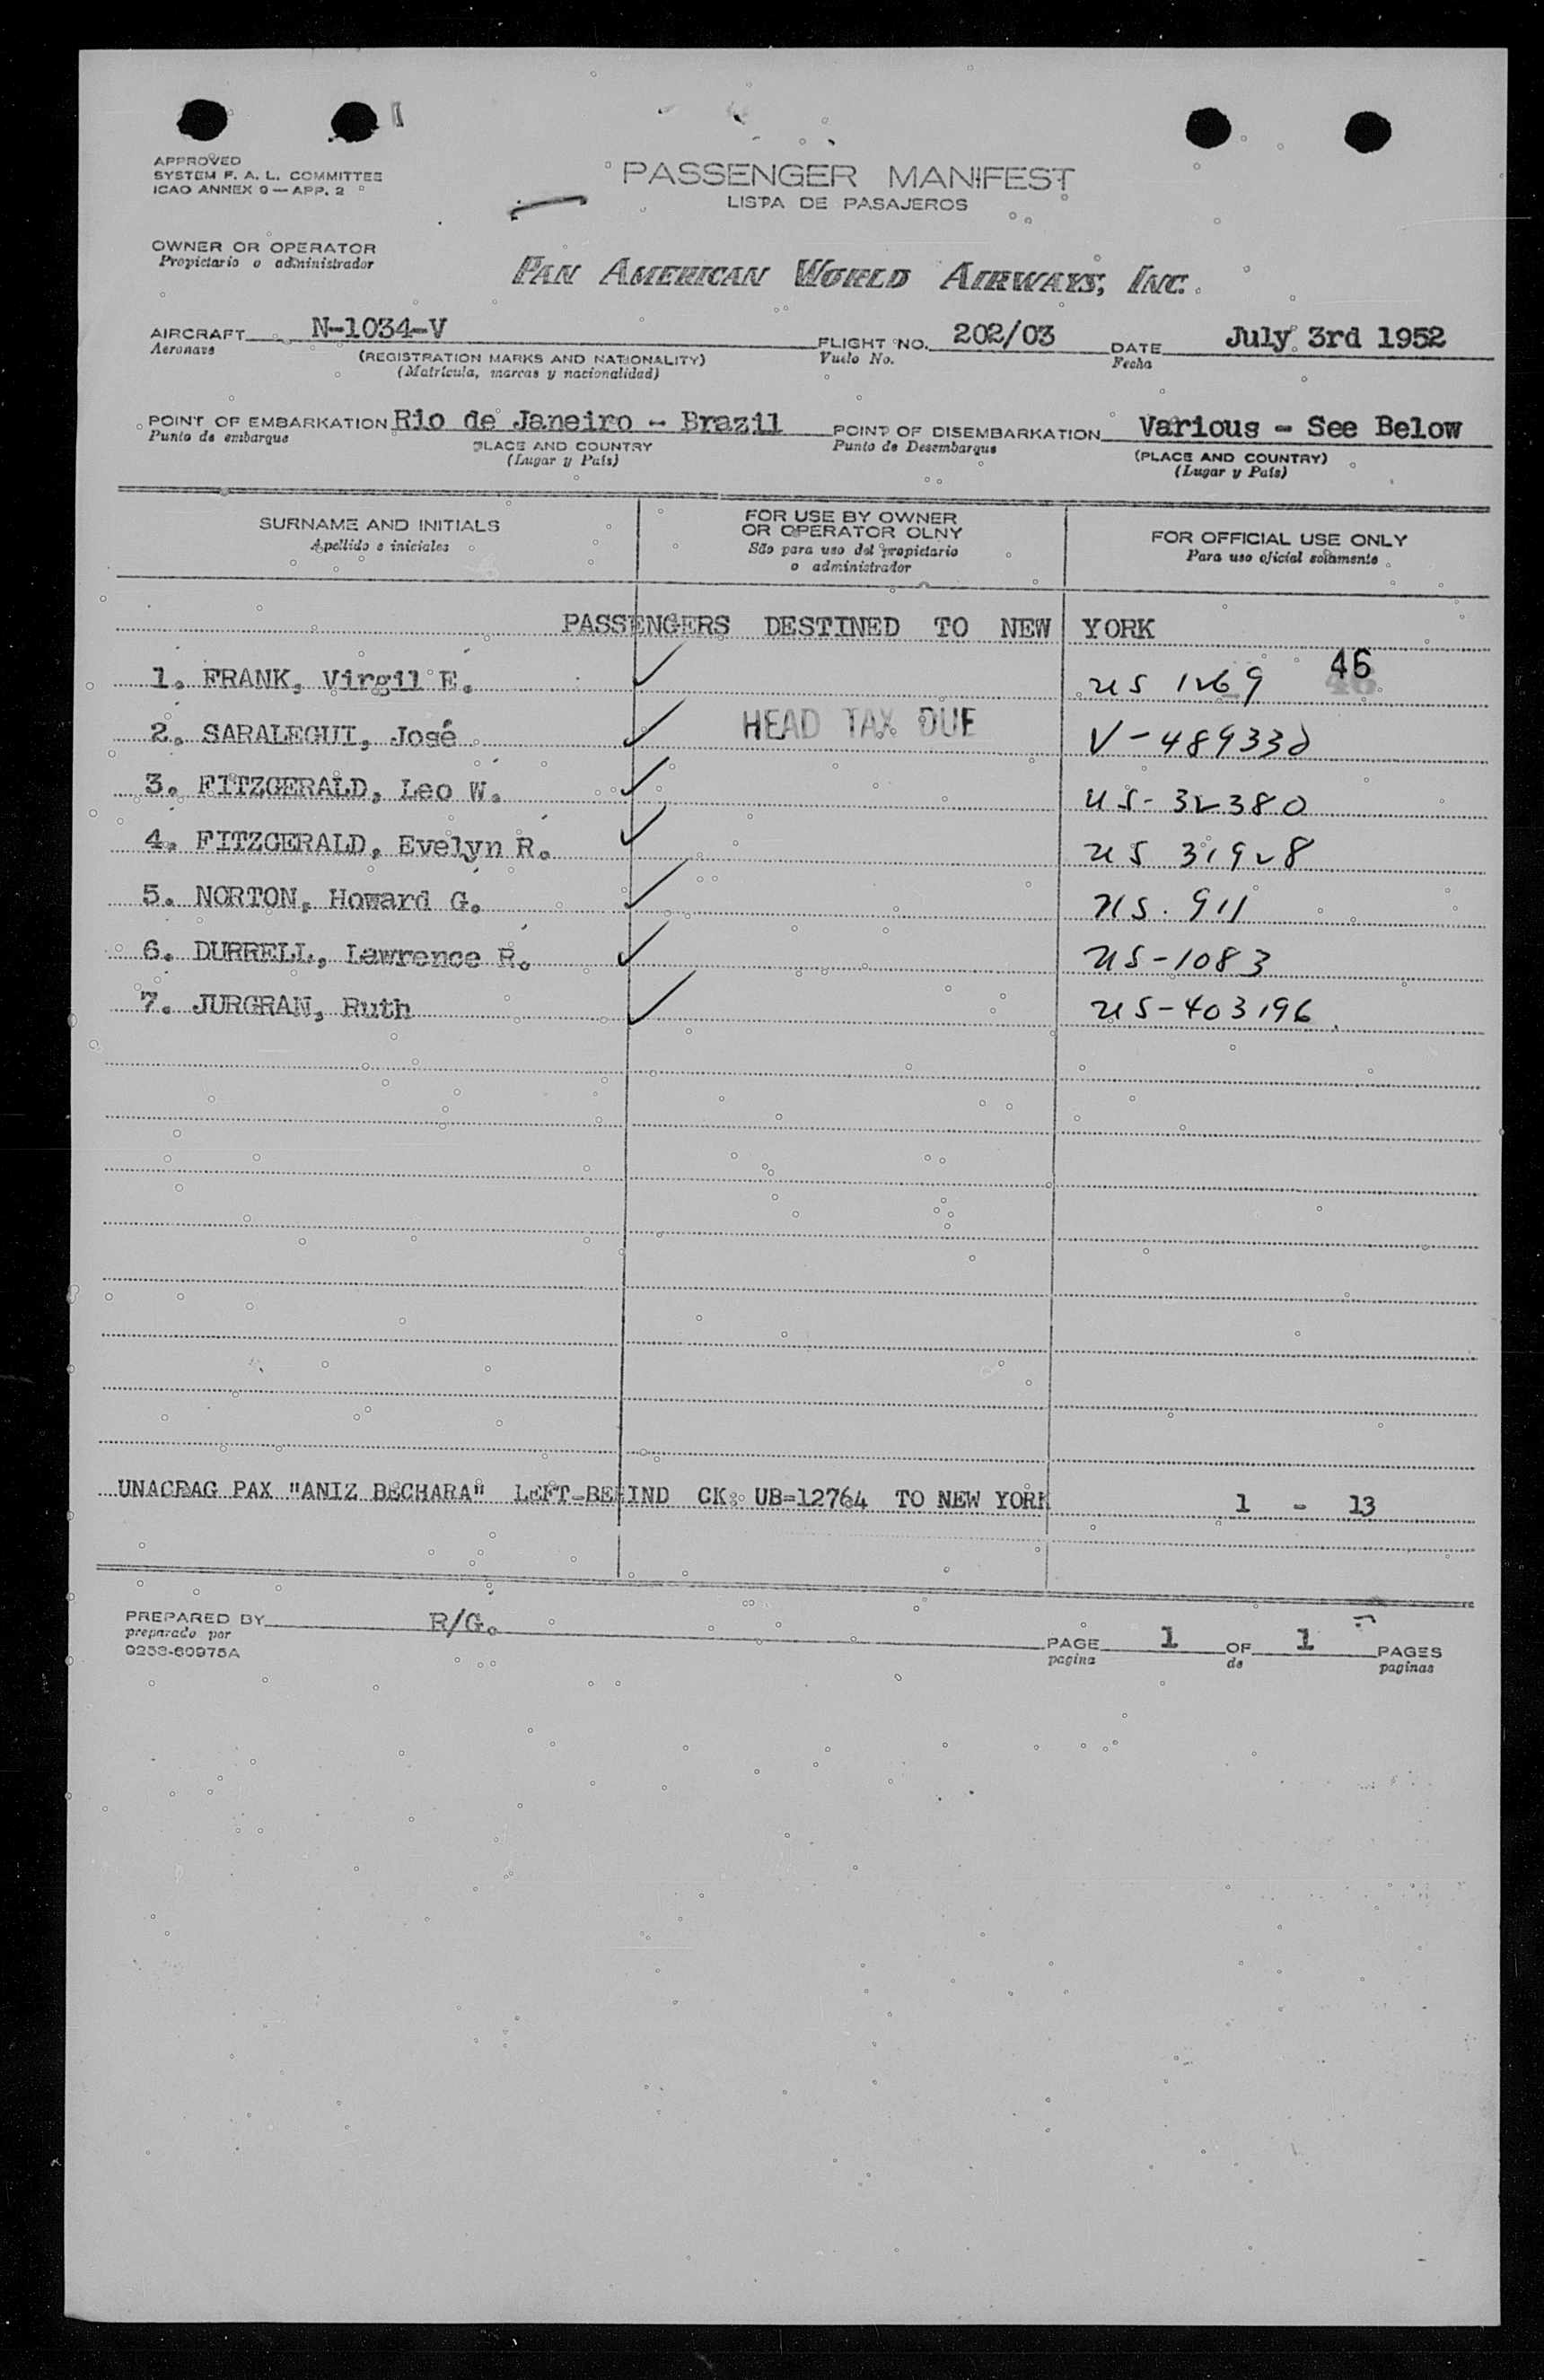 APPROVED
SYSTEM F. A. L. COMMITTEE
ICAO ANNEX 9 — APP. 2
PASSENGER MANIFEST
LISTA DE PASAJEROS
OWNER OR OPERATOR
Propietario o administrador
PAN AMERICAN WORLD AIRWAYS, INC.
AIRCRAFT N-1034-V FLIGHT NO. 202/03 DATE July 3rd 1952
Aeronave (REGISTRATION MARKS AND NATIONALITY) Vuelo No. Fecha
(Matrícula, marcas y nacionalidad)
POINT OF EMBARKATION Rio de Janeiro - Brazil POINT OF DISEMBARKATION Various - See Below
Punto de embarque PLACE AND COUNTRY Punto de Desembarque (PLACE AND COUNTRY)
(Lugar y País) (Lugar y País)
SURNAME AND INITIALS
Apellido e iniciales
FOR USE BY OWNER
OR OPERATOR OLNY
São para uso del propietario
o administrador
FOR OFFICIAL USE ONLY
Para uso oficial solamente
PASSENGERS DESTINED TO NEW YORK
1. FRANK, Virgil E. ✓ US 1269 46
2. SARALEGUI, José ✓ HEAD TAX DUE V-489332
3. FITZGERALD, Leo W. ✓ US-32380
4. FITZGERALD, Evelyn R. ✓ US 31928
5. NORTON, Howard G. ✓ US. 911
6. DURRELL, Lawrence R. ✓ US-1083
7. JURGRAN, Ruth ✓ US-403196
UNACBAG PAX "ANIZ BECHARA" LEFT-BEHIND CK: UB=12764 TO NEW YORK 1 - 13
PREPARED BY R/G. PAGE 1 OF 1 PAGES
preparado por pagina de paginas
9253-60975A